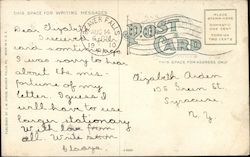 THIS SPACE FOR WRITING MESSAGES
POST CARD
PLACE STAMP HERE
DOMESTIC ONE CENT
FOREIGN TWO CENTS
THIS SPACE FOR ADDRESS ONLY
BEAVER FALLS
AUG 14
19
Dear Elizabeth
I received your
card sometime ago
I was sorry to hear
about the mis-
fortune of my
letter. I guess I
will have to use
larger stationary
With love from
all. Write soon
Gladys.
Elizabeth Arden
105 Green St.
Syracuse
N. Y.